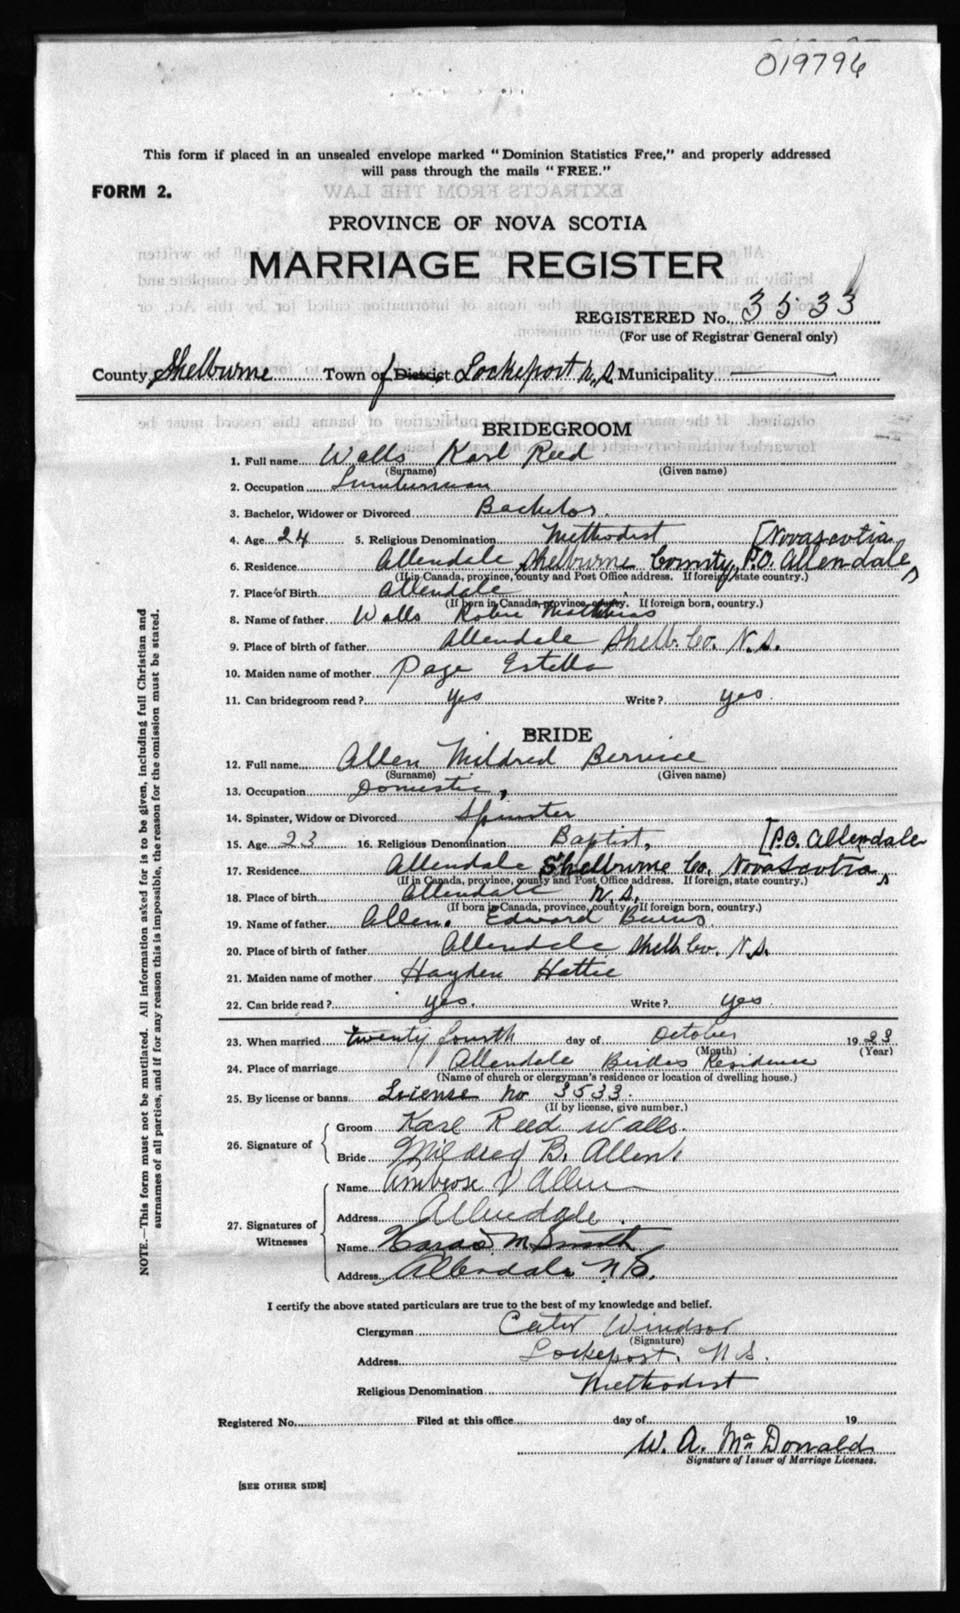 019796
This form if placed in an unsealed envelope marked "Dominion Statistics Free," and properly addressed
will pass through the mails "FREE."
FORM 2.
PROVINCE OF NOVA SCOTIA
MARRIAGE REGISTER
REGISTERED No. 3533
(For use of Registrar General only)
County Shelburne Town of District Lockeport N.S. Municipality
BRIDEGROOM
1. Full name Walls Karl Reed
(Surname) (Given name)
2. Occupation Lumberman
3. Bachelor, Widower or Divorced Bachelor.
4. Age 24 5. Religious Denomination Methodist [Nova Scotia
6. Residence Allendale Shelburne County, P.O. Allendale,
(If in Canada, province, county and Post Office address. If foreign, state country.)
7. Place of Birth Allendale
(If born in Canada, province, county. If foreign born, country.)
8. Name of father Walls
9. Place of birth of father Allendale Shelb. Co. N.S.
10. Maiden name of mother Page Estella
11. Can bridegroom read? yes Write? yes.
BRIDE
12. Full name Allen Mildred Bernice
(Surname) (Given name)
13. Occupation Domestic,
14. Spinster, Widow or Divorced Spinster
15. Age 23 16. Religious Denomination Baptist, [P.O. Allendale
17. Residence Allendale Shelburne Co. Nova Scotia,
(If in Canada, province, county and Post Office address. If foreign, state country.)
18. Place of birth Allendale N.S.
(If born in Canada, province, county. If foreign born, country.)
19. Name of father Allen. Edward Burns.
20. Place of birth of father Allendale Shelb. Co. N.S.
21. Maiden name of mother Hayden Hattie
22. Can bride read? yes. Write? yes
23. When married twenty fourth day of October 1923
(Month) (Year)
24. Place of marriage Allendale Brides Residence
(Name of church or clergyman's residence or location of dwelling house.)
25. By license or banns License No 3533.
(If by license, give number.)
26. Signature of
Groom Karl Reed Walls.
Bride Mildred B. Allen.
27. Signatures of Witnesses
Name Ambrose V Allen
Address Allendale.
Name M. Smith
Address Allendale N.S.
I certify the above stated particulars are true to the best of my knowledge and belief.
Clergyman Cater Windsor
(Signature)
Address Lockeport. N.S.
Religious Denomination Methodist
Registered No. Filed at this office day of 19
W. A. McDonald
Signature of Issuer of Marriage Licenses.
[SEE OTHER SIDE]
NOTE.—This form must not be mutilated. All information asked for is to be given, including full Christian and
surnames of all parties, and if for any reason this is impossible, the reason for the omission must be stated.